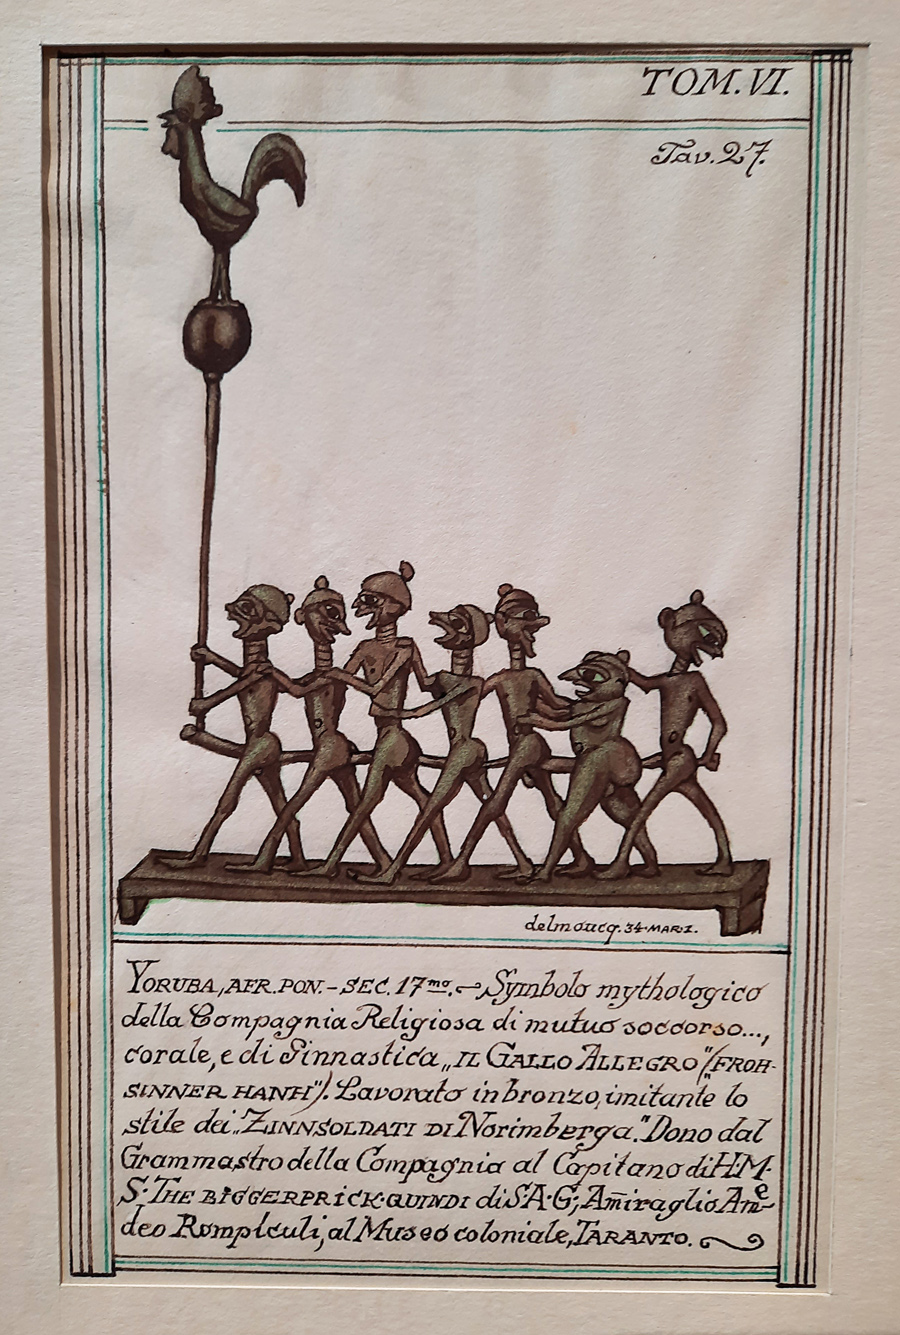 TOM. VI.
Tav. 27.
delmoucq. 34 MARZ.
YORUBA, AFR. PON. – SEC. 17mo. Symbolo mythologico
della Compagnia Religiosa di mutuo soccorso...,
corale, e di Ginnastica „IL GALLO ALLEGRO" („FROH-
SINNER HANH"). Lavorato in bronzo, imitante lo
stile dei „ZINNSOLDATI DI Norimberga." Dono dal
Grammastro della Compagnia al Capitano di H·M·
S· THE BIGGERPRICK·QUINDI di S·A·G·; Amiraglio Ame-
deo Rompiculi, al Museo coloniale, TARANTO.